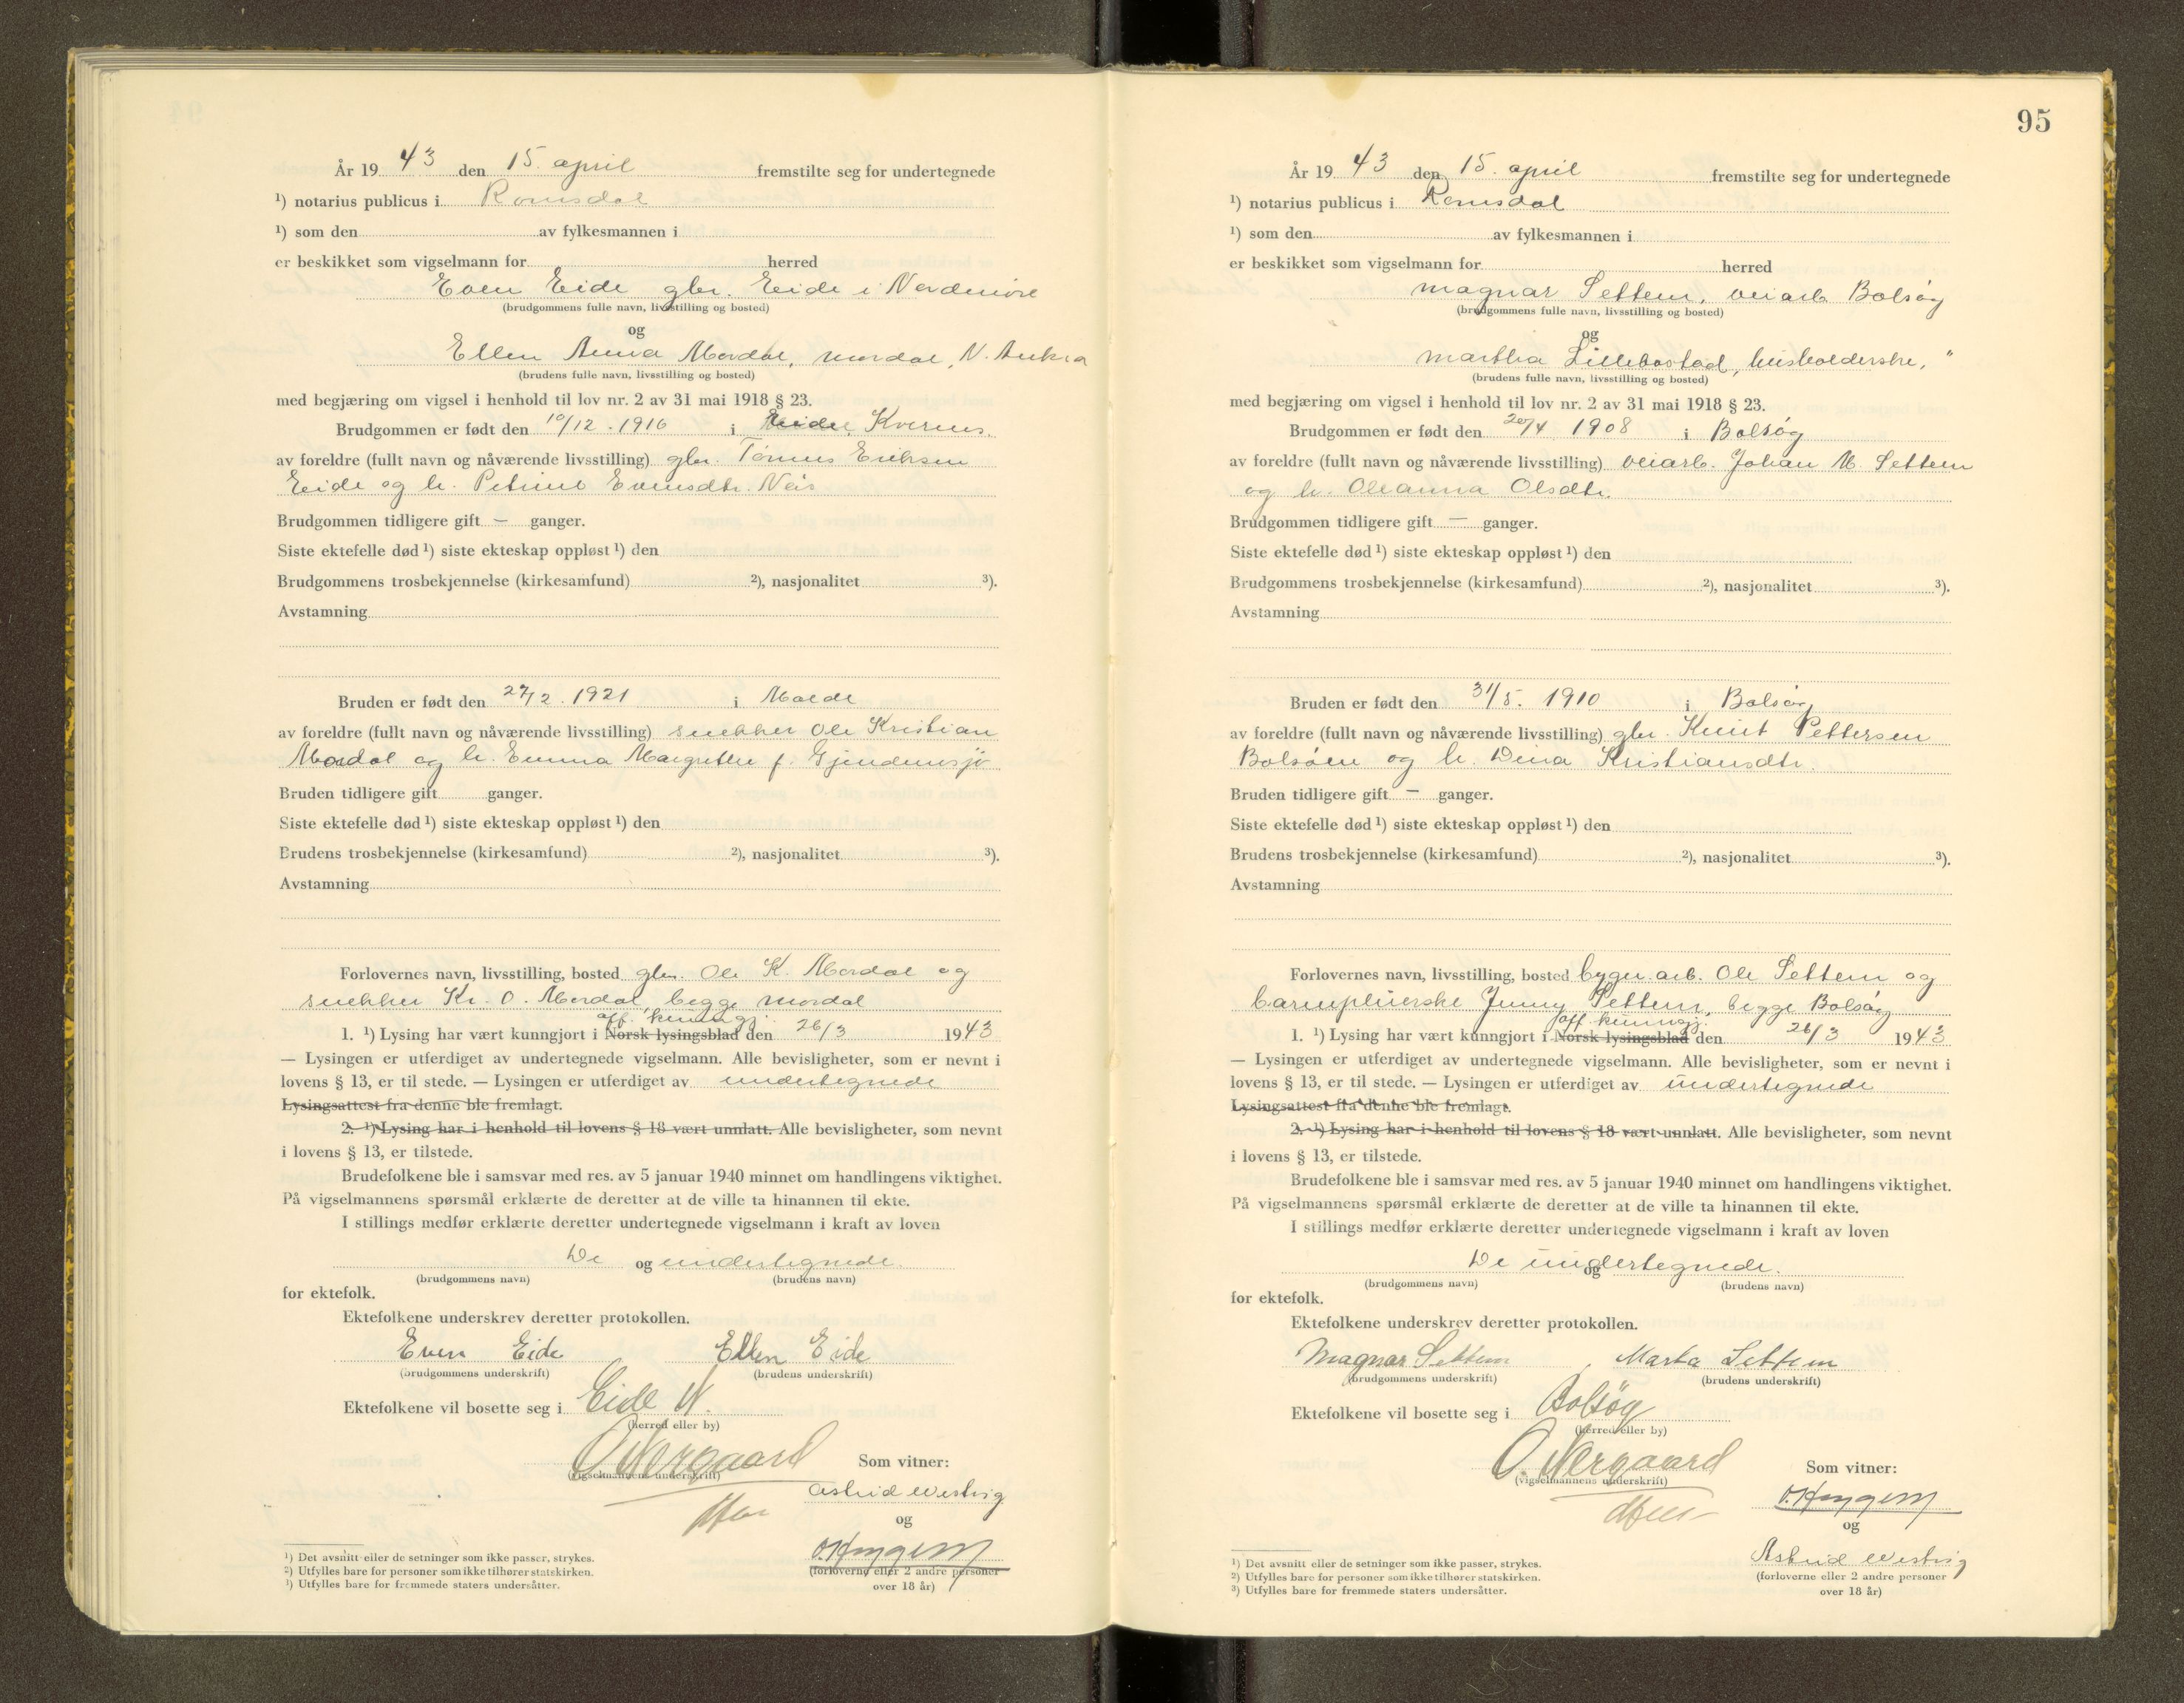 År 19 43 den 15. april fremstilte seg for undertegnede
¹) notarius publicus i Romsdal
¹) som den av fylkesmannen i
er beskikket som vigselmann for herred
Even Eide gbr. Eide i Nordmøre
(brudgommens fulle navn, livsstilling og bosted)
og
Ellen Anna Mordal, Mordal, N. Aukra
(brudens fulle navn, livsstilling og bosted)
med begjæring om vigsel i henhold til lov nr. 2 av 31 mai 1918 § 23.
Brudgommen er født den 10/12. 1916 i Kvernes.
av foreldre (fullt navn og nåværende livsstilling) gbr. Tomas Eriksen
Eide og h. Petrine Evensdtr. Nås
Brudgommen tidligere gift — ganger.
Siste ektefelle død ¹) siste ekteskap oppløst ¹) den
Brudgommens trosbekjennelse (kirkesamfund) ²), nasjonalitet ³).
Avstamning
Bruden er født den 27/2. 1921 i Molde
av foreldre (fullt navn og nåværende livsstilling) snekker Ole Kristian
Mordal og h. Emma Margrethe f. Gjendemsjø
Bruden tidligere gift ganger.
Siste ektefelle død ¹) siste ekteskap oppløst ¹) den
Brudens trosbekjennelse (kirkesamfund) ²), nasjonalitet ³).
Avstamning
Forlovernes navn, livsstilling, bosted gbr. Ole K. Mordal og
snekker Kr. O. Mordal, begge Mordal
off. kunngj.
1. ¹) Lysing har vært kunngjort i Norsk lysingsblad den 26/3 1943
— Lysingen er utferdiget av undertegnede vigselmann. Alle bevisligheter, som er nevnt i
lovens § 13, er til stede. — Lysingen er utferdiget av undertegnede
Lysingsattest fra denne ble fremlagt.
2. ¹) Lysing har i henhold til lovens § 18 vært unnlatt. Alle bevisligheter, som nevnt
i lovens § 13, er tilstede.
Brudefolkene ble i samsvar med res. av 5 januar 1940 minnet om handlingens viktighet.
På vigselmannens spørsmål erklærte de deretter at de ville ta hinannen til ekte.
I stillings medfør erklærte deretter undertegnede vigselmann i kraft av loven
De og undertegnede.
(brudgommens navn) (brudens navn)
for ektefolk.
Ektefolkene underskrev deretter protokollen.
Even Eide Ellen Eide
(brudgommens underskrift) (brudens underskrift)
Ektefolkene vil bosette seg i Eide N.
(herred eller by)
O. Nergaard
(vigselmannens underskrift)
Som vitner:
Astrid Westvig
og
(forloverne eller 2 andre personer
over 18 år)
¹) Det avsnitt eller de setninger som ikke passer, strykes.
²) Utfylles bare for personer som ikke tilhører statskirken.
³) Utfylles bare for fremmede staters undersåtter.
95
År 19 43 den 15. april fremstilte seg for undertegnede
¹) notarius publicus i Romsdal
¹) som den av fylkesmannen i
er beskikket som vigselmann for herred
Magnar Settem, veiarb. Bolsøy
(brudgommens fulle navn, livsstilling og bosted)
og
Martha Lillebostad, husholderske, "
(brudens fulle navn, livsstilling og bosted)
med begjæring om vigsel i henhold til lov nr. 2 av 31 mai 1918 § 23.
Brudgommen er født den 20/4 1908 i Bolsøy
av foreldre (fullt navn og nåværende livsstilling) veiarb. Johan M. Settem
og h. Oleanna Olsdtr.
Brudgommen tidligere gift — ganger.
Siste ektefelle død ¹) siste ekteskap oppløst ¹) den
Brudgommens trosbekjennelse (kirkesamfund) ²), nasjonalitet ³).
Avstamning
Bruden er født den 31/5. 1910 i Bolsøy
av foreldre (fullt navn og nåværende livsstilling) gbr. Knut Pettersen
Bolsøen og h. Dina Kristiansdtr.
Bruden tidligere gift — ganger.
Siste ektefelle død ¹) siste ekteskap oppløst ¹) den
Brudens trosbekjennelse (kirkesamfund) ²), nasjonalitet ³).
Avstamning
Forlovernes navn, livsstilling, bosted bygn.arb. Ole Settem og
barnepleierske Jenny Settem, begge Bolsøy
off. kunngj.
1. ¹) Lysing har vært kunngjort i Norsk lysingsblad den 26/3 1943
— Lysingen er utferdiget av undertegnede vigselmann. Alle bevisligheter, som er nevnt i
lovens § 13, er til stede. — Lysingen er utferdiget av undertegnede
Lysingsattest fra denne ble fremlagt.
2. ¹) Lysing har i henhold til lovens § 18 vært unnlatt. Alle bevisligheter, som nevnt
i lovens § 13, er tilstede.
Brudefolkene ble i samsvar med res. av 5 januar 1940 minnet om handlingens viktighet.
På vigselmannens spørsmål erklærte de deretter at de ville ta hinannen til ekte.
I stillings medfør erklærte deretter undertegnede vigselmann i kraft av loven
De undertegnede.
og
(brudgommens navn) (brudens navn)
for ektefolk.
Ektefolkene underskrev deretter protokollen.
Magnar Settem Marta Settem
(brudgommens underskrift) (brudens underskrift)
Ektefolkene vil bosette seg i Bolsøy
(herred eller by)
O. Nergaard
(vigselmannens underskrift)
Som vitner:
og
Astrid Westvig
(forloverne eller 2 andre personer
over 18 år)
¹) Det avsnitt eller de setninger som ikke passer, strykes.
²) Utfylles bare for personer som ikke tilhører statskirken.
³) Utfylles bare for fremmede staters undersåtter.